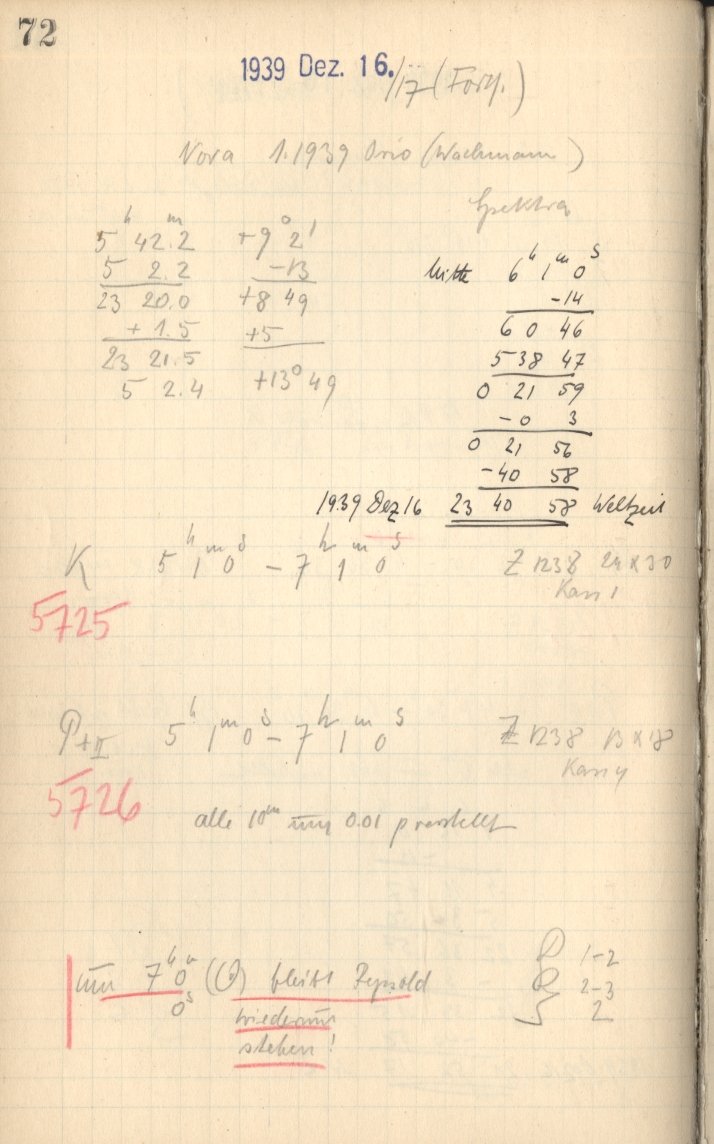 72
1939 Dez. 16./17 (Forts.)
Nova 1.1939 Orio (Wachmann)
Spektra
5h 42m.2 +9° 2'
5 2.2 -13
23 20.0 +8 49
+ 1.5 +5
23 21.5
5 2.4 +13° 49
Mitte 6h 1m 0s
-14
6 0 46
5 38 47
0 21 59
-0 3
0 21 56
-40 58
1939 Dez 16 23 40 58 Weltzeit
K 5h 1m 0s – 7h 1m 0s Z 1238 24 x 30
Kass 1
5725
P+II 5h 1m 0s – 7h 1m 0s Z 1238 13 x 18
Kass 4
5726
alle 10m um 0.01 p verstellt
um 7h 0m 0s (O) bleibt Repsold
wiederum
stehen!
1-2
2-3
2